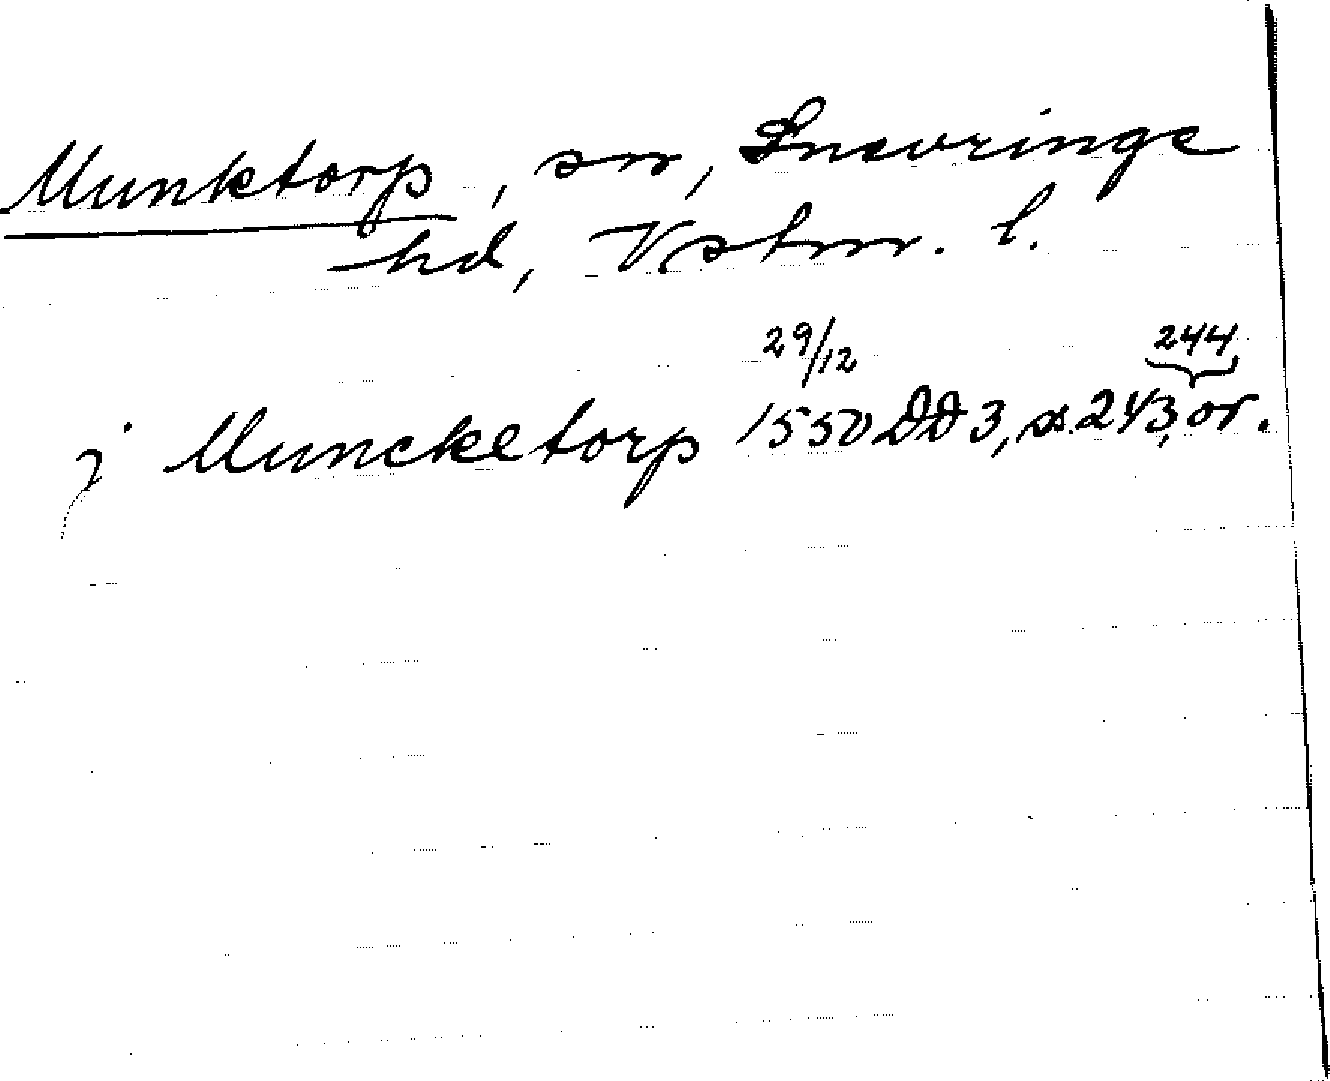 Munktorp, sn, Snevringe
hd, Vstm. l.
29/12
244
j Muncketorp 1550 DD 3, s. 243, or.